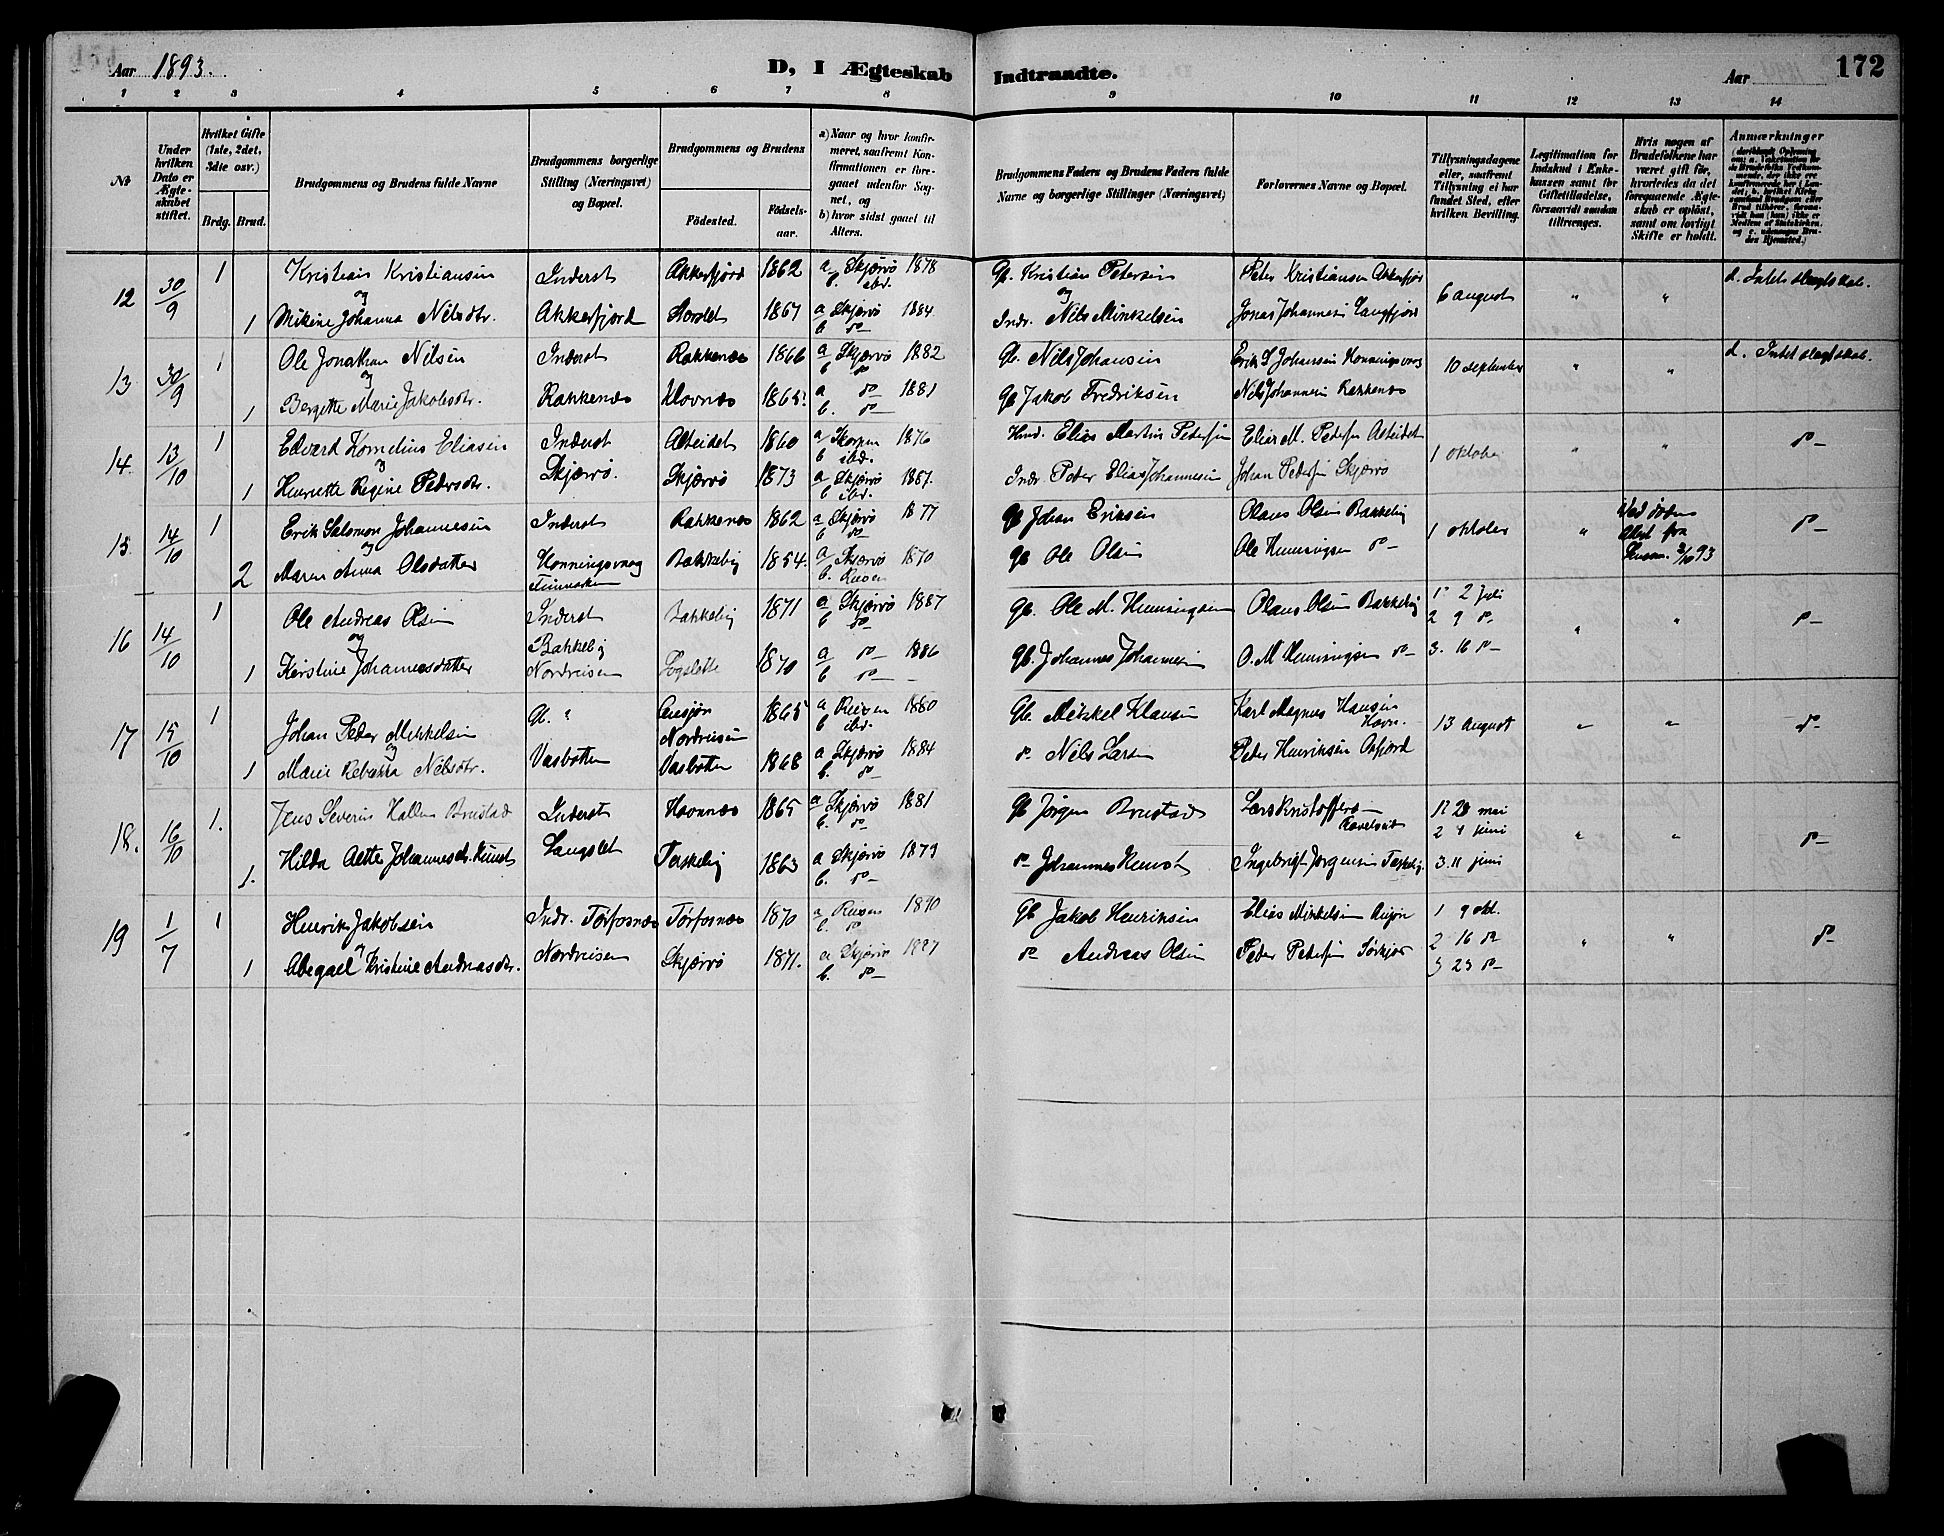 Aar 1893.
D, I Ægteskab Indtraadte.
Aar
172
1 2 3 4 5 6 7 8 9 10 11 12 13 14
№
Under hvilken Dato er Ægteskabet stiftet.
Hvilket Gifte (1ste, 2det, 3die osv.)
Brdg. Brud.
Brudgommens og Brudens fulde Navne
Brudgommens borgerlige Stilling (Næringsvei) og Bopæl.
Brudgommens og Brudens
Fødested. Fødselsaar.
a) Naar og hvor konfirmeret, saafremt Konfirmationen er foregaaet udenfor Sognet, og
b) hvor sidst gaaet til Alters.
Brudgommens Faders og Brudens Faders fulde Navne og borgerlige Stillinger (Næringsvei)
Forlovernes Navne og Bopæl.
Tillysningsdagene eller, saafremt Tillysning ei har fundet Sted, efter hvilken Bevilling.
Legitimation for Indskud i Enkekassen samt for Giftetilladelse, forsaavidt saadan tiltrænges.
Hvis nogen af Brudefolkene har været gift før, hvorledes da det foregaaende Ægteskab er opløst, samt om lovligt Skifte er holdt.
Anmærkninger
12 30/9 1 Kristian Kristiansen Inderst Akkerfjord 1862 a Skjærvø 1878 b. ibd. Gb. Kristian Petersen Peter Kristiansen Akkerfjor 6 august " " d. Intet slegtskab.
og
1 Mikine Johanna Nilsdtr. Akkerfjord Storslet 1867 a Skjærvø 1884 b do Indr. Nils Minkelsen Jonas Johannesen Langfjord
13 30/9 1 Ole Jonathan Nilsen Inderst Rakkenæs 1866 a Skjærvø 1882 b do Gb. Nils Johansen Erik S Johansen Honningsvaag 10 september " " d. Intet slegtskab.
og
1 Bergitte Marie Jakobsdtr. Rakkenæs Hovnæs 1865. a do 1881 b. do Gb Jakob Fredriksen Nils Johannesen Rakkenæs
14. 13/10 1 Edvard Kornelius Eliasen Inderst Alteidet 1860 a Skorpen 1876 b ibd. Hmd. Elias Martin Petersen Elias M. Petersen Alteidet 1 oktober " " do
og
1 Henriette Regine Pedersdtr. Skjærvø. Skjærvø 1873 a Skjærvø 1887. b ibd. Indr. Peder Elias Johannesen Johan Petersen Skjærvø
15. 14/10 1 Erik Salomon Johannesen Inderst Rakkenæs 1862 a Skjærvø 1877 b do Gb Johan Eriksen Olaus Olsen Bakkeby 1 oktober " Ved døden do
og
2 Maren Anna Olsdatter Honningsvaag Finmarken Bakkeby 1854. a Skjærvø 1870 b. Reisen Gb Ole Olsen Ole Henningsen do fra 93
16 14/10 1 Ole Andreas Olsen Inderst Bakkeby 1871 a Skjærvø 1887 b do Gb. Ole M. Henningsen Olaus Olsen Bakkeby 1 2 juli " " do
og 2 9 do
1 Kerstine Johannesdatter Bakkeby Nordreisen Sogslette 1870 a do 1886 b do Gb. Johannes Johannesen O. M Henningsen do 3. 16 do
17 15/10 1 Johan Peder Mikkelsen Gb. " Nordreisen 1865 a Reisen 1880 b ibd. Gb. Mikkel Klausen Karl Magnus Hansen Havn. 13 august " " do
og
1 Marie Rebekka Nilsdtr. Vasbotten Vasbotten 1868 a Skjærvø 1884 b. do do Nils Larsen Peder Henriksen Oxfjord
18. 16/10 1. Jens Severin Hall Brustad Inderst Havnnæs 1865 a Skjærvø 1881 b. do Gb Jørgen Brustad Lars Kristoffersen 1. 28 mai " " do
2 4 juni
1. Hilda Aette Johannesdtr. Kunst Langslet Taskeby 1863 a Skjærvø 1879 b. do do Johannes Kunst Ingebrigt Jørgensen Taskeby. 3. 11 juni
19 1/7 1 Henrik Jakobsen Indr. Torfosnæs Torfosnæs 1870 a Reisen 1890 b. do Gb Jakob Henriksen Elias Minkelsen 1 9 okt. " " do
og 2 16 do
1 Abegael Kristine Andreasdtr. Nordreisen Skjærvø 1871. a Skjærvø 1887 b. do do Andreas Olsen Peder Petersen Sørkjos 3 23 do